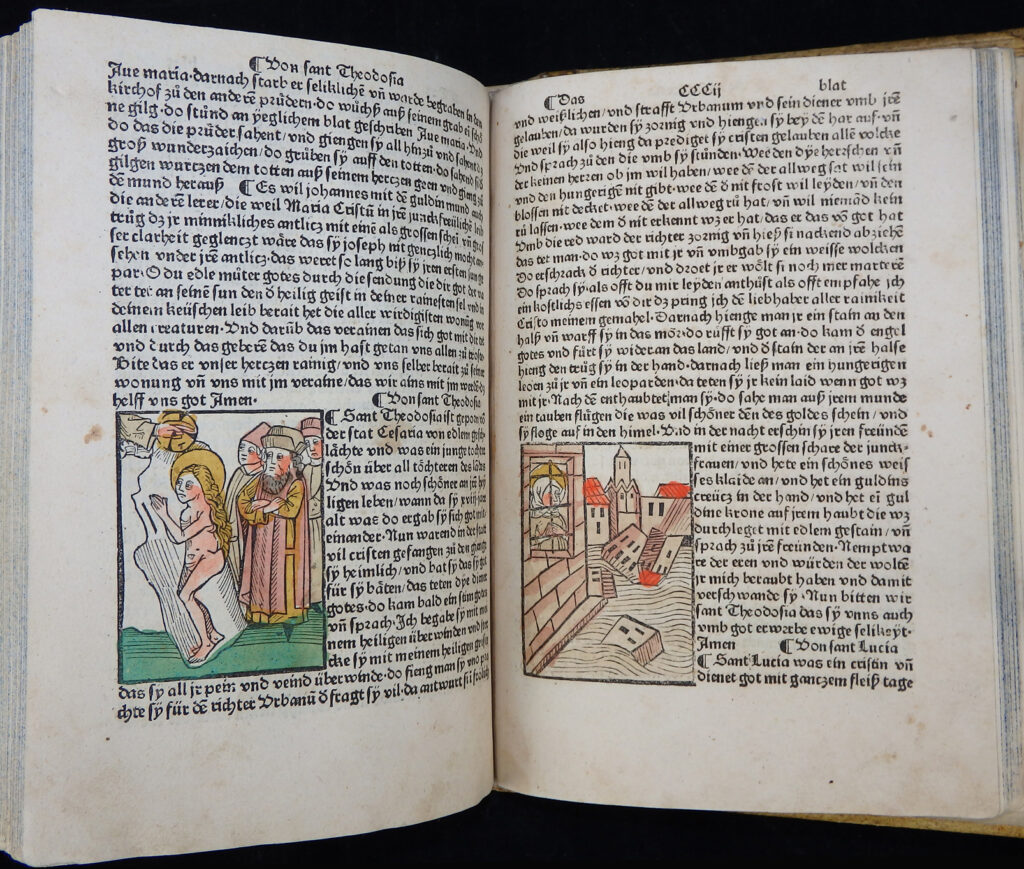 ¶ Von sant Theodosia
Aue maria·darnach starb er seliklichē vñ warde begraben in den
kirchof zů den anderē průdern·do wůchß auß seinem grab ei schö
ne gilg·do stůnd an ÿeglichem blat geschriben Aue maria·Vnd
do das die průder sahent/vnd giengen sÿ all hinzů vnd sahent dz
groß wunderzaichen/do grůben sÿ auff den totten·do sahend sÿ die
gilgen wurczen dem totten auß seinem herczen geen vnd gieng zů
dē mund herauß ¶ Es wil johannes mit dē guldin mund auch
die anderē lerer/die weil Maria Cristū in jrē junckfreülichē leib
trůg dz jr minnikliches antlicz mit einē als grossen scheī vñ gros
ser clarheit geglenczt wäre das sÿ joseph nit genczlich mocht an
sehen vnder jrē antlicz·das weret so lang biß sÿ jren ersten sun ge
par·O du edle můter gotes durch die sendung die dir got der va
ter tet an seinē sun den đ heilig geist in deiner rainesten sel vnd in
deinem keüschen leib berait het die aller wirdigisten wonūg vor
allen creaturen·Vnd darūb das verainen das sich got mit dir tet
vnd durch das geberē das du jm hast getan vns allen zů trost
Bite das er vnser herczen rainig/vnd vns selber berait zů seiner
wonung vñ vns mit jm veraine/das wir ains mit jm werdē dz
helff vns got Amen· ¶ Von sant Theodosia
¶ Sant Theodosia ist geporn vō
der stat Cesaria von edlem gesch
lächte vnd was ein junge tochter
schön über all töchteren des lādes
Vnd was noch schöner an jrē hey
ligen leben/wann da sÿ xviij jare
alt was do ergab sÿ sich got mit
einander·Nun warend in der stat
vil cristen gefangen zů den gienge
sÿ heimlich/vnd bat sÿ das sÿ got
für sÿ bäten/das teten dÿe diener
gotes·do kam bald ein stim gotes
vñ sprach·Ich begabe sÿ mit mei
nem heiligen überwinden vnd ster
cke sÿ mit meinem heiligen geist
das sÿ all jr pein vnd veind überwinde·do fieng man sÿ vnd pra
chte sÿ für dē richter Vrbanū đ fragt sÿ vil·da antwurt sÿ frölich
¶ Das CCCij blat
vnd weißlichen/vnd strafft Vrbanum vnd sein diener vmb jrē
gelauben/da wurden sÿ zornig vnd hiengen sÿ bey dē har auf·vñ
die weil sÿ also hieng da prediget sy cristen gelauben allē volcke
Vnd sprach zů den die vmb sÿ stůnden·Wee den dÿe herrschen vñ
der keinen herren ob jm wil haben/wee dē der allweg sat wil sein
vnd den hungerigē nit gibt·wee dē đ nit frost wil leyden/vñ den
blossen nit decket·wee dē der allweg rů hat/vñ wil niemād kein
rů lassen·wee dem đ nit erkennt wz er hat/das er das vō got hat
Vmb die red ward der richter zornig vñ hieß si nackend abziehē
das tet man·do wz got mit jr vñ vmbgab sÿ ein weisse wolcken
Do erschrack đ richter/vnd dzoet jr er wölt si noch mer marterē
Do sprach sÿ·als offt du mir leyden anthůst als offt empfahe jch
ein kostlichs essen vō dir dz pring jch dē liebhaber aller rainikeit
Cristo meinem gemahel·Darnach hienge man jr ein stain an den
halß vñ warff sÿ in das mör·do růfft sÿ got an·do kam đ engel
gotes vnd fürt sÿ wider an das land/vnd đ stain der an jrē halse
hieng den trůg sÿ in der hand·darnach ließ man ein hungerigen
leoen zů jr vñ ein leoparden·da teten sÿ jr kein laid wenn got wz
mit jr·Nach dē enthaubtet man sÿ·do sahe man auß jrem munde
ein tauben flügen die was vil schöner dēn des goldes schein/vnd
sÿ floge auf in den himel·Vnd in der nacht erschin sÿ jren freündē
mit einer grossen schare der junck
frauen/vnd hete ein schönes weis
ses klaide an/vnd het ein guldins
creücz in der hand/vnd het eī gul
dine krone auf jrem haubt die wz
durchleget mit edlem gestain/vñ
sprach zů jrē freünden·Nempt wa
re der eren vnd würden der wolte
jr mich beraubt haben vnd damit
verschwande sÿ·Nun bitten wir
sant Theodosia das sÿ vnns auch
vmb got erwerbe ewige selikeyt·
Amen ¶ Von sant Lucia
¶ Sant Lucia was ein cristin vñ
dienet got mit ganczem fleiß tage